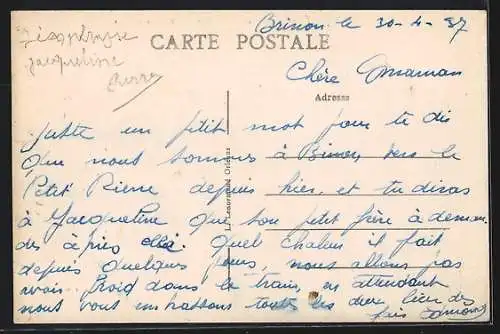 Brinon le 30-4-37
Jacqueline
Pierre
CARTE POSTALE
Chère Maman
Adresse
juste un petit mot pour te dis
que nous sommes à Brinon vers le
Petit Pierre depuis hier, et tu diras
à Jacqueline que son petit frère à deman
dés à près elle. Quel chaleur il fait
depuis quelques jours, nous allons pas
avoir froid dans le train, en attendant
nous vous embrassons toutes les deux, bien des
L. Lenormand Orléans